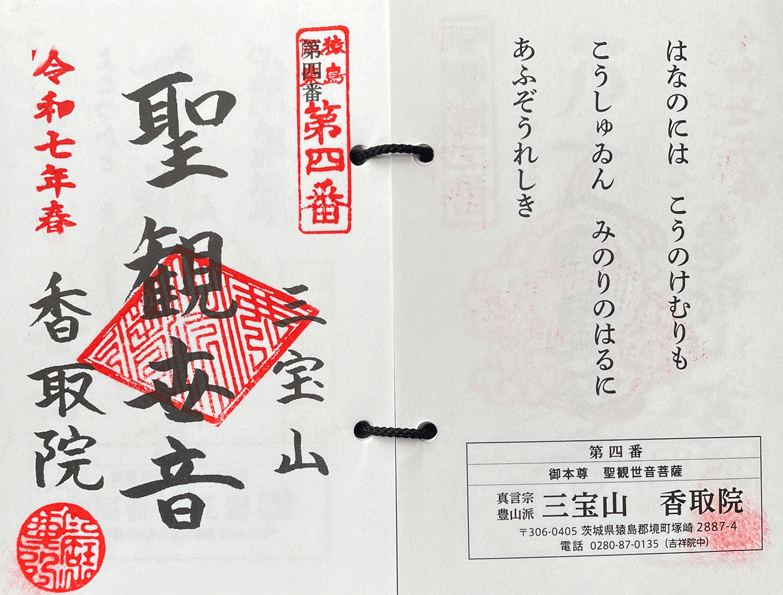 はなのには　こうのけむりも
こうしゅゐん　みのりのはるに
あふぞうれしき
第四番
御本尊　聖観世音菩薩
真言宗
豊山派
三宝山　香取院
〒306-0405 茨城県猿島郡境町塚崎 2887-4
電話 0280-87-0135（吉祥院中）
猿島
第四番
第四番
三宝山
聖観世音
令和七年春
香取院